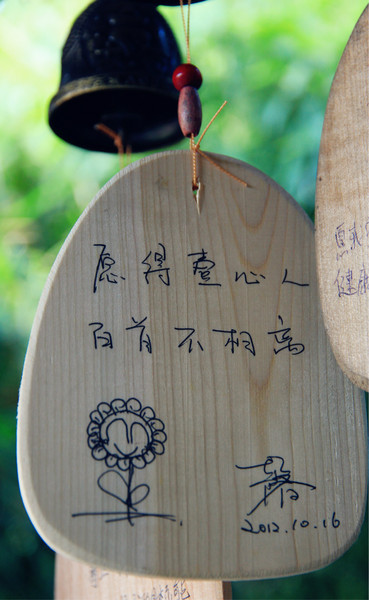 愿得壹心人
白首不相离
2012.10.16
健康